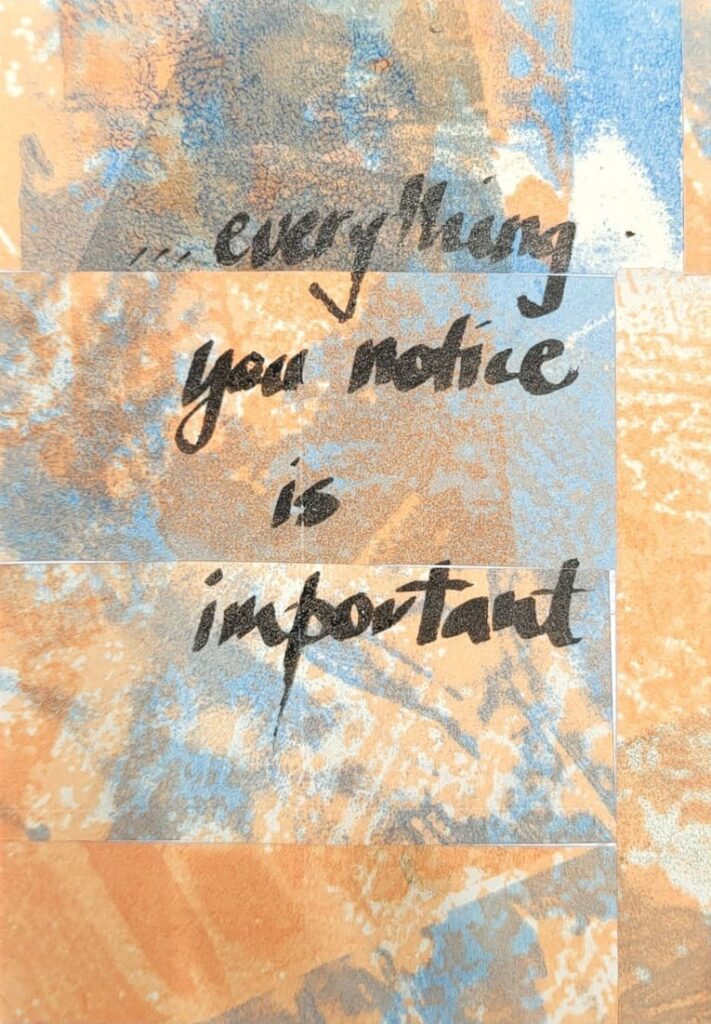 ...everything
you notice
is
important